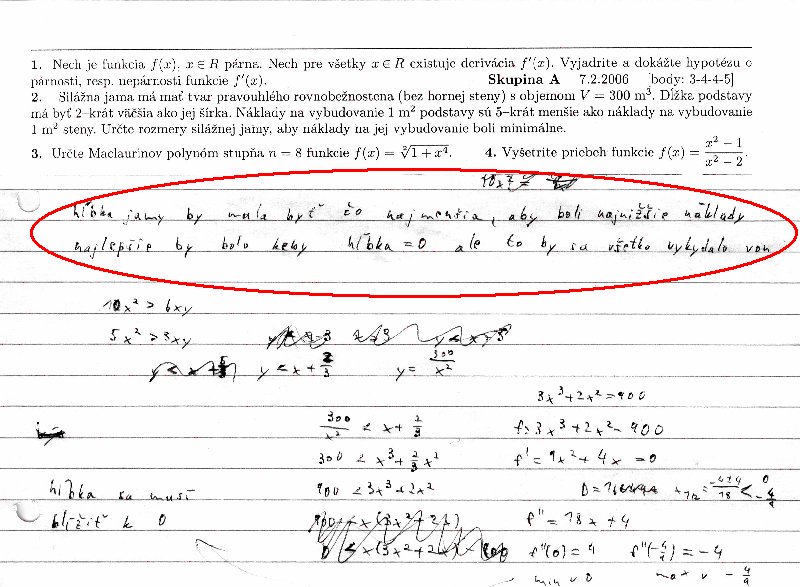 1. Nech je funkcia f(x), x ∈ R párna. Nech pre všetky x ∈ R existuje derivácia f′(x). Vyjadrite a dokážte hypotézu o
párnosti, resp. nepárnosti funkcie f′(x). Skupina A 7.2.2006 [body: 3-4-4-5]
2. Silážna jama má mať tvar pravouhlého rovnobežnostena (bez hornej steny) s objemom V = 300 m³. Dĺžka podstavy
má byť 2–krát väčšia ako jej šírka. Náklady na vybudovanie 1 m² podstavy sú 5–krát menšie ako náklady na vybudovanie
1 m² steny. Určte rozmery silážnej jamy, aby náklady na jej vybudovanie boli minimálne.
3. Určte Maclaurinov polynóm stupňa n = 8 funkcie f(x) = ∛(1 + x⁴). 4. Vyšetrite priebeh funkcie f(x) = (x² − 1)/(x² − 2).
hĺbka jamy by mala byť čo najmenšia, aby boli najnižšie náklady
najlepšie by bolo keby hĺbka = 0 ale to by sa všetko vykydalo von
10x² > 6xy
5x² > 3xy
y < x + 2/3 y = 300/x²
3x³ + 2x² = 900
300/x² < x + 2/3 f: 3x³ + 2x² - 900
300 < x³ + 2/3 x² f' = 9x² + 4x = 0
hĺbka sa musí 900 < 3x³ + 2x²
blížiť k 0 f'' = 18x + 4
f''(0) = 4 f''(-4/9) = -4
min v 0 max v -4/9